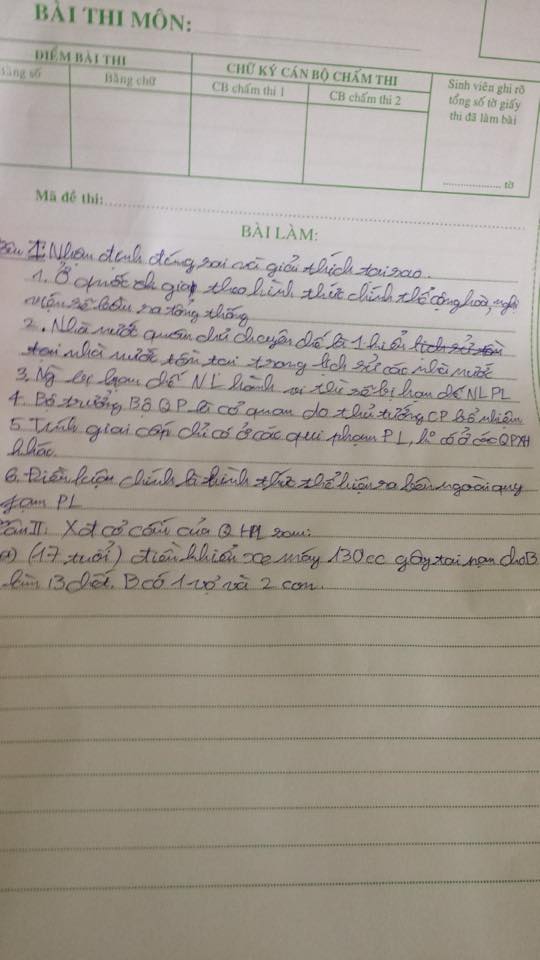 BÀI THI MÔN:
ĐIỂM BÀI THI
CHỮ KÝ CÁN BỘ CHẤM THI
Sinh viên ghi rõ
tổng số tờ giấy
thi đã làm bài
Bằng số
Bằng chữ
CB chấm thi 1
CB chấm thi 2
tờ
Mã đề thi:
BÀI LÀM:
Câu I: Nhận định đúng sai và giải thích tại sao.
1. Ở quốc gia theo hình thức chính thể cộng hòa, nghị
viện sẽ bầu ra tổng thống
2. Nhà nước quân chủ chuyên chế là 1 kiểu lịch sử tồn
tại nhà nước tồn tại trong lịch sử các nhà nước
3. Ng bị hạn chế NL hành vi thì sẽ bị hạn chế NLPL
4. Bộ trưởng Bộ QP là cơ quan do thủ tướng CP bổ nhiệm
5. Tính giai cấp chỉ có ở các qui phạm PL, k° có ở các QPXH
khác.
6. Điều luật chính là hình thức thể hiện ra bên ngoài quy
fạm PL
Câu II. Xđ cơ cấu của QHPL sau:
a) (17 tuổi) điều khiển xe máy 130cc gây tai nạn cho B
làm B chết. B có 1 vợ và 2 con.